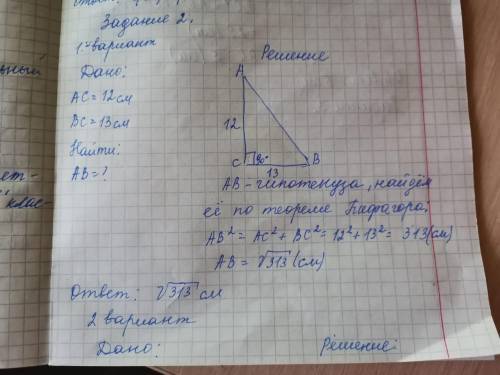 Задание 2.
1 вариант
Решение
Дано:
AC = 12 см
BC = 13 см
Найти:
AB = ?
A
12
C
90°
B
13
AB - гипотенуза, найдём
её по теореме Пифагора:
AB² = AC² + BC² = 12² + 13² = 313 (см)
AB = √313 (см)
Ответ: √313 см
2 вариант
Дано:
Решение: